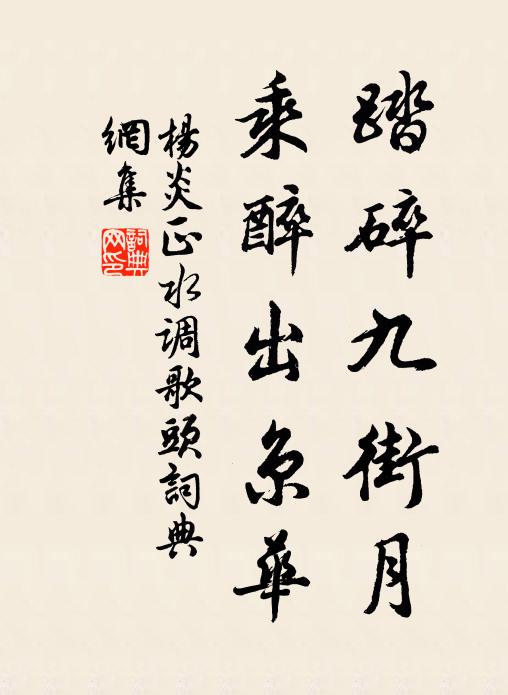 踏碎九街月
乘醉出京華
楊炎正水调歌頭詞典
網集
詞典
网印